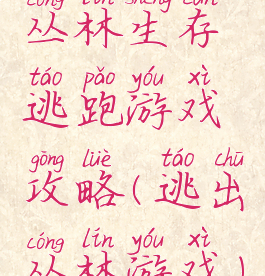 cóng lín shēng cún
丛林生存
táo pǎo yóu xì
逃跑游戏
gōng lüè táo chū
攻略(逃出
cóng lín yóu xì
丛林游戏)